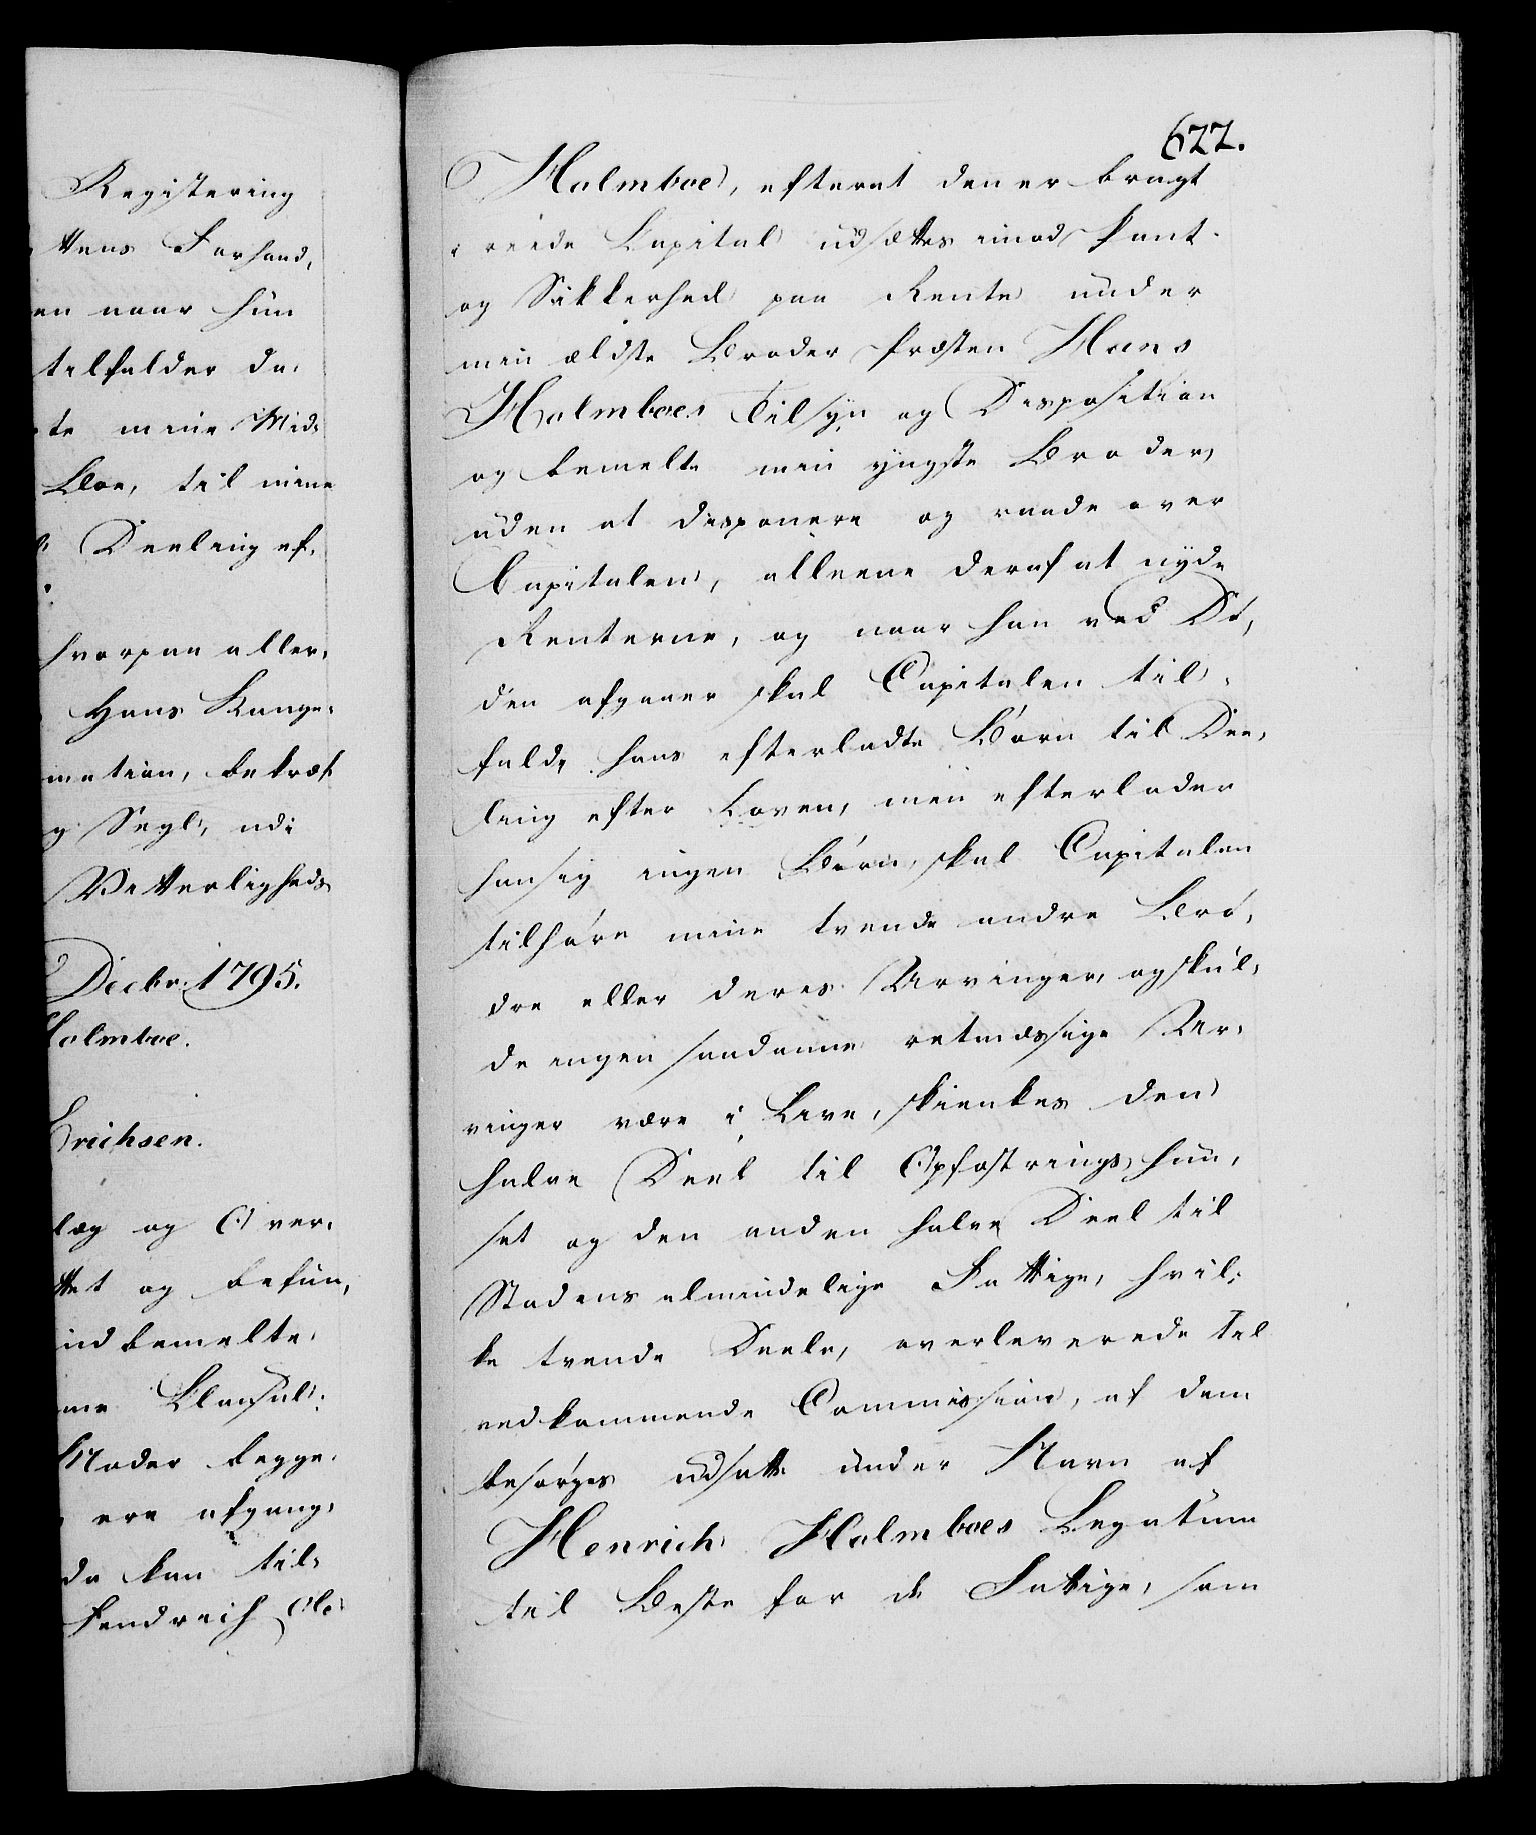 Registering
ttens Forhand,
en naar hun
tilfalder de,
te mine Mid,
Boe, til mine
Deeling ef,
hvorpaa aller,
Hans Kange,
mation, bekræf,
g Segl, udi
Vitterligheds
Decbr: 1795.
Holmboe.
Erichsen.
læg og Over,
ttet og befun,
ind bemelte
me Clausul:
Moder begge,
ere afgang,
da kan til,
Fendrich Ole
622.
Holmboe, efterat den er bragt
i reede Capital udsættes imod Pant
og Sikkerhed paa Rente under
min ældste Broder Præsten Hans
Holmboes Tilsyn og Disposition
og bemelte min yngste Broder,
uden at disponere og raade over
Capitalen, alleene deraf at nyde
Renterne, og naar han ved Dö,
den afgaaer skal Capitalen til,
falde hans efterladte Börn til Dee,
ling efter Loven, men efterlader
han sig ingen Börn, skal Capitalen
tilhöre mine tvende andre Brö,
dre eller deres Arvinger, og skul,
de ingen saadanne retmæssige Ar,
vinger være i Live, skienkes den
halve Deel til Opfostringshuu,
set og den anden halve Deel til
Stadens almindelige Fattige, hvil,
ke tvende Deele, overleverede til
vedkommende Commission, af dem
besörges udsatte under Navn af
Henrich Holmboes Legatum
til Beste for de Fattige, som